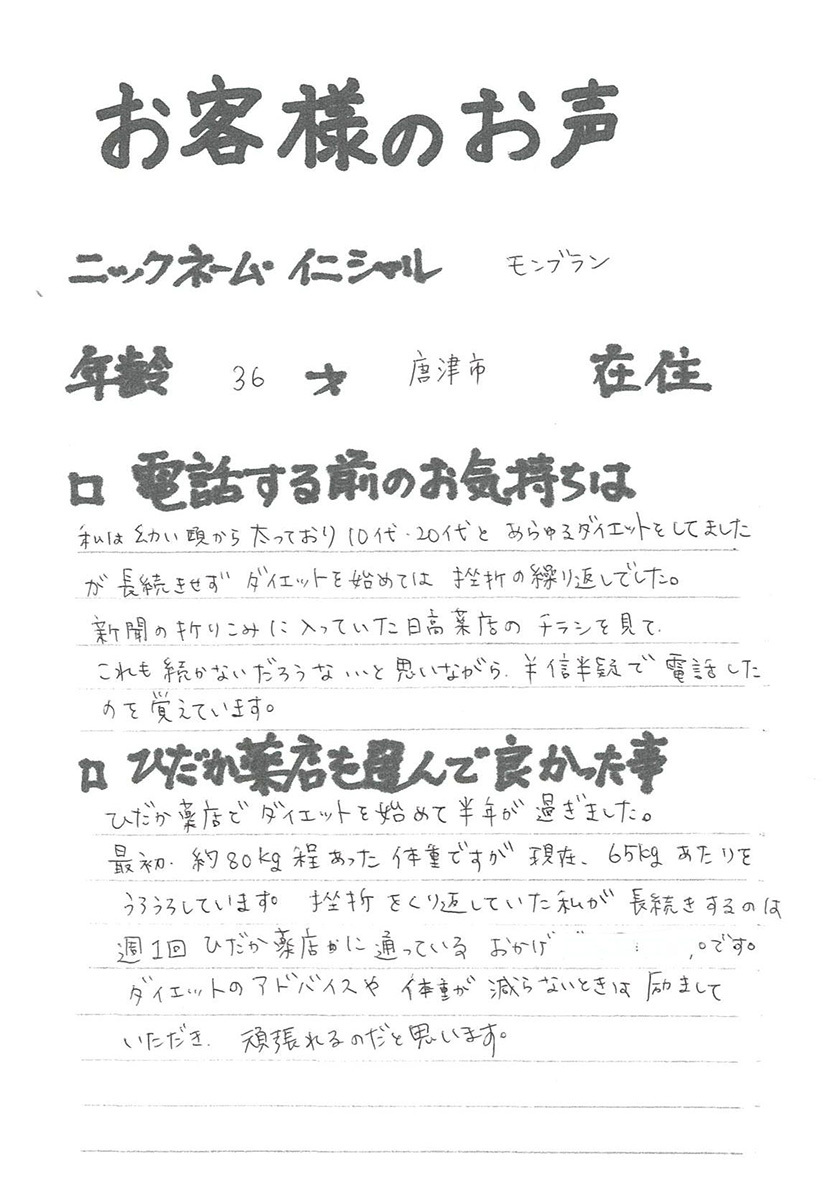 お客様のお声
ニックネーム・イニシャル モンブラン
年齢 36 才 唐津市 在住
□ 電話する前のお気持ちは
私は幼い頃から太っており10代・20代とあらゆるダイエットをしてました
が長続きせずダイエットを始めては挫折の繰り返しでした。
新聞の折りこみに入っていた日高薬店のチラシを見て、
これも続かないだろうな…と思いながら、半信半疑で電話した
のを覚えています。
□ ひだか薬店を選んで良かった事
ひだか薬店でダイエットを始めて半年が過ぎました。
最初、約80kg程あった体重ですが現在、65kgあたりを
うろうろしています。挫折をくり返していた私が長続きするのは
週1回ひだか薬店に通っているおかげ です。
ダイエットのアドバイスや体重が減らないときは励まして
いただき、頑張れるのだと思います。